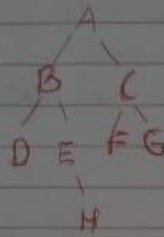 A
B C
D E F G
H